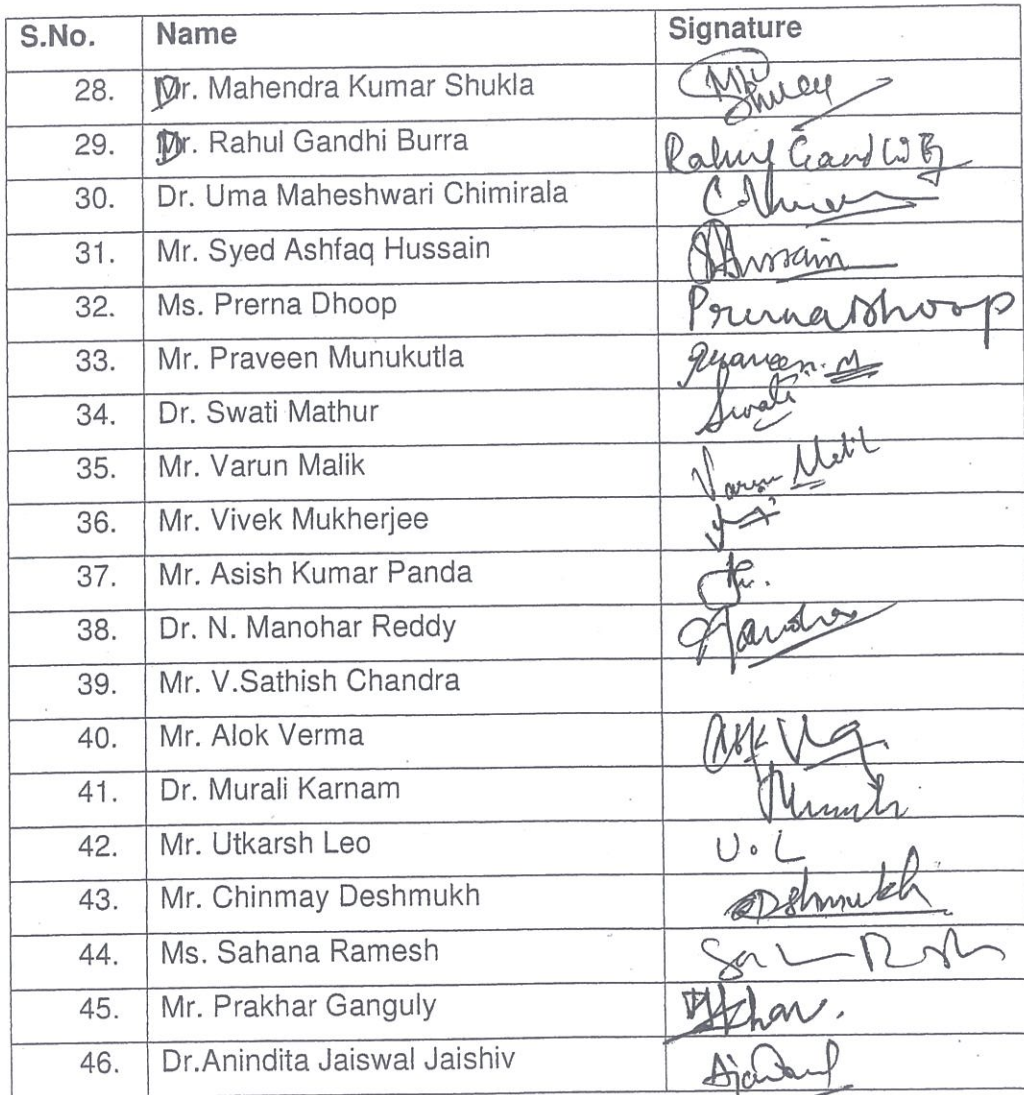 S.No. Name Signature
28. Dr. Mahendra Kumar Shukla
29. Dr. Rahul Gandhi Burra Rahul Gandhi B
30. Dr. Uma Maheshwari Chimirala
31. Mr. Syed Ashfaq Hussain SAHussain
32. Ms. Prerna Dhoop Prerna Dhoop
33. Mr. Praveen Munukutla Praveen. M
34. Dr. Swati Mathur Swati
35. Mr. Varun Malik Varun Malik
36. Mr. Vivek Mukherjee
37. Mr. Asish Kumar Panda
38. Dr. N. Manohar Reddy
39. Mr. V.Sathish Chandra
40. Mr. Alok Verma
41. Dr. Murali Karnam
42. Mr. Utkarsh Leo U. L
43. Mr. Chinmay Deshmukh Deshmukh
44. Ms. Sahana Ramesh
45. Mr. Prakhar Ganguly
46. Dr.Anindita Jaiswal Jaishiv